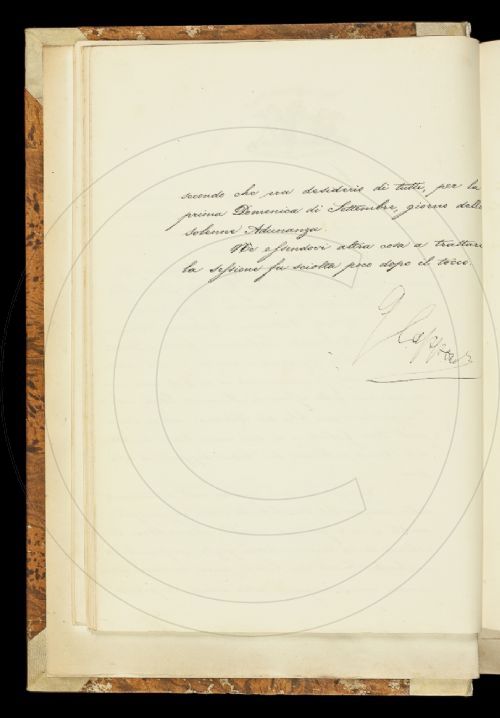 secondo che era desiderio di tutti, per la
prima Domenica di Settembre, giorno della
solenne Adunanza.
Nè essendovi altra cosa a trattare
la sessione fu sciolta poco dopo il tocco.
G Capponi